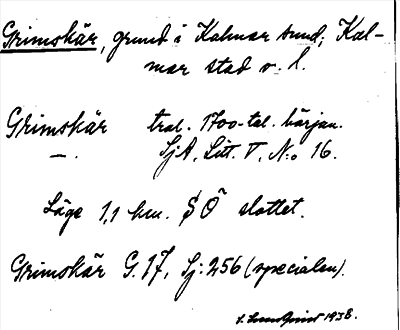 Grimskär, grund i Kalmar sund, Kal-
mar stad o. l.
Grimskär trol. 1700-tal. början.
—. SjA, Litt. V, N:o 16.
Läge 1,1 km. SÖ slottet.
Grimskär G.17, Sj:256 (specialen).
1938.